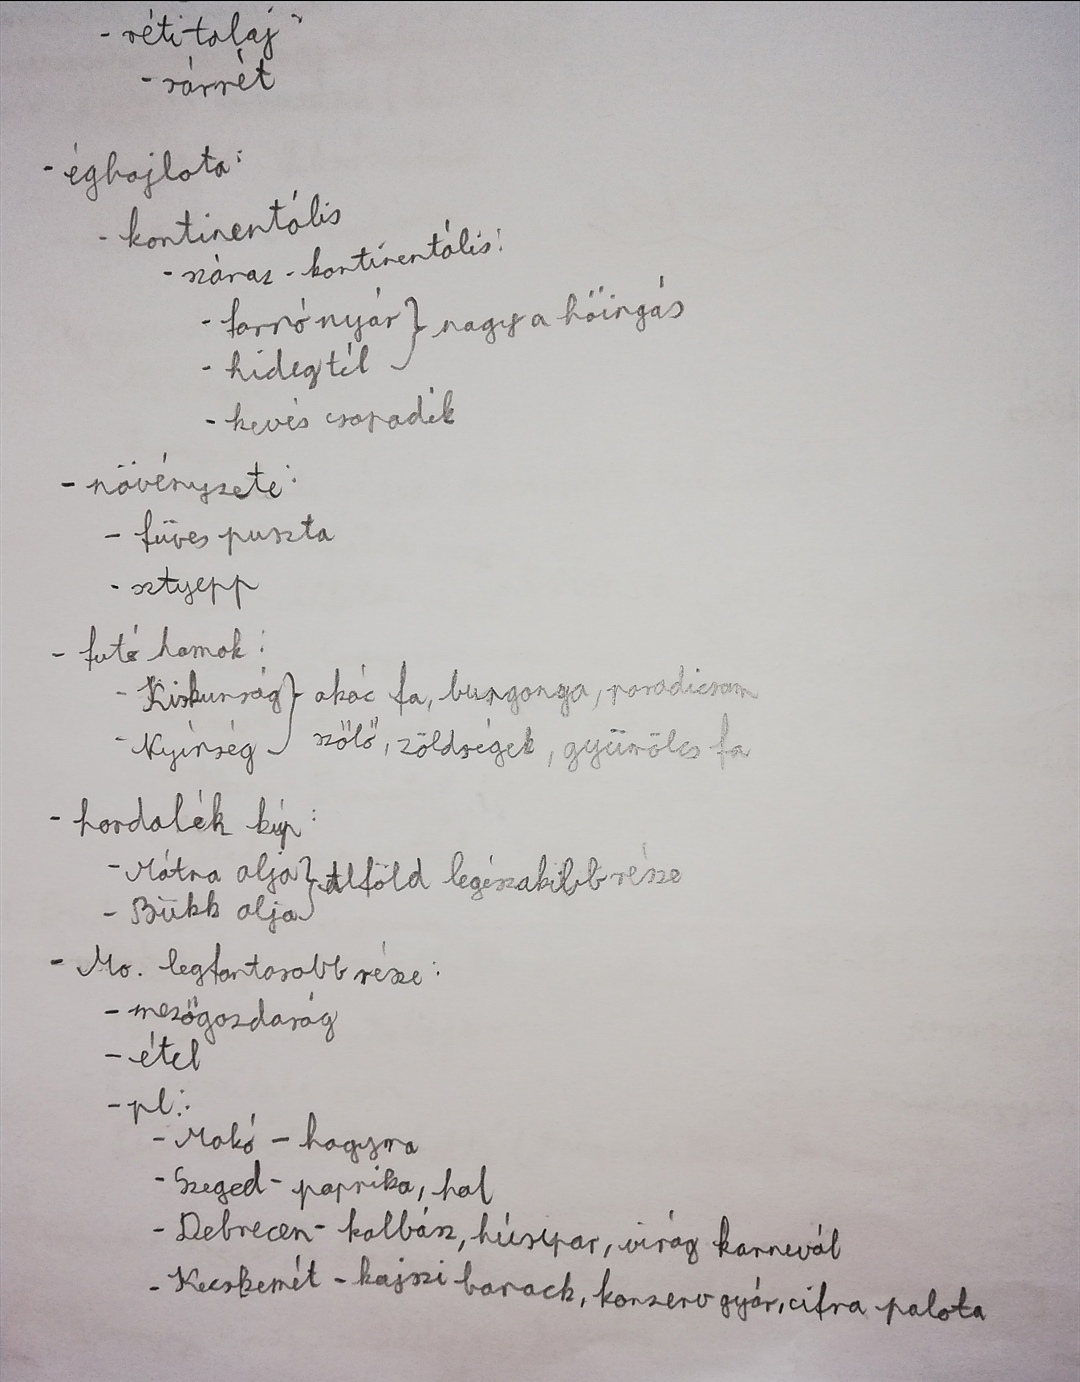 - réti-talaj:
- sárrét
- éghajlata:
- kontinentális
- száraz - kontinentális:
- forró nyár } nagy a hőingás
- hideg tél
- kevés csapadék
- növényzete:
- füves puszta
- sztyepp
- futó homok:
- Kiskunság } akác fa, burgonya, paradicsom
- Nyírség szőlő, zöldségek, gyümölcs fa
- hordalék kúp:
- Mátra alja } Alföld legészakibb része
- Bükk alja
- Mo. legfontosabb része:
- mezőgazdaság
- étel
- pl.:
- Makó - hagyma
- Szeged - paprika, hal
- Debrecen - kolbász, húsipar, virág karnevál
- Kecskemét - kajszi barack, konzerv gyár, cifra palota